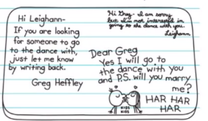 Hi Leighann-
If you are looking
for someone to go
to the dance with,
just let me know
by writing back.
Greg Heffley
Hi Greg- I am sorry
but I'm not interested in
going to the dance with you.
Leighann
Dear Greg
Yes I will go to
the dance with you
and P.S. will you marry
me?
HAR HAR
HAR